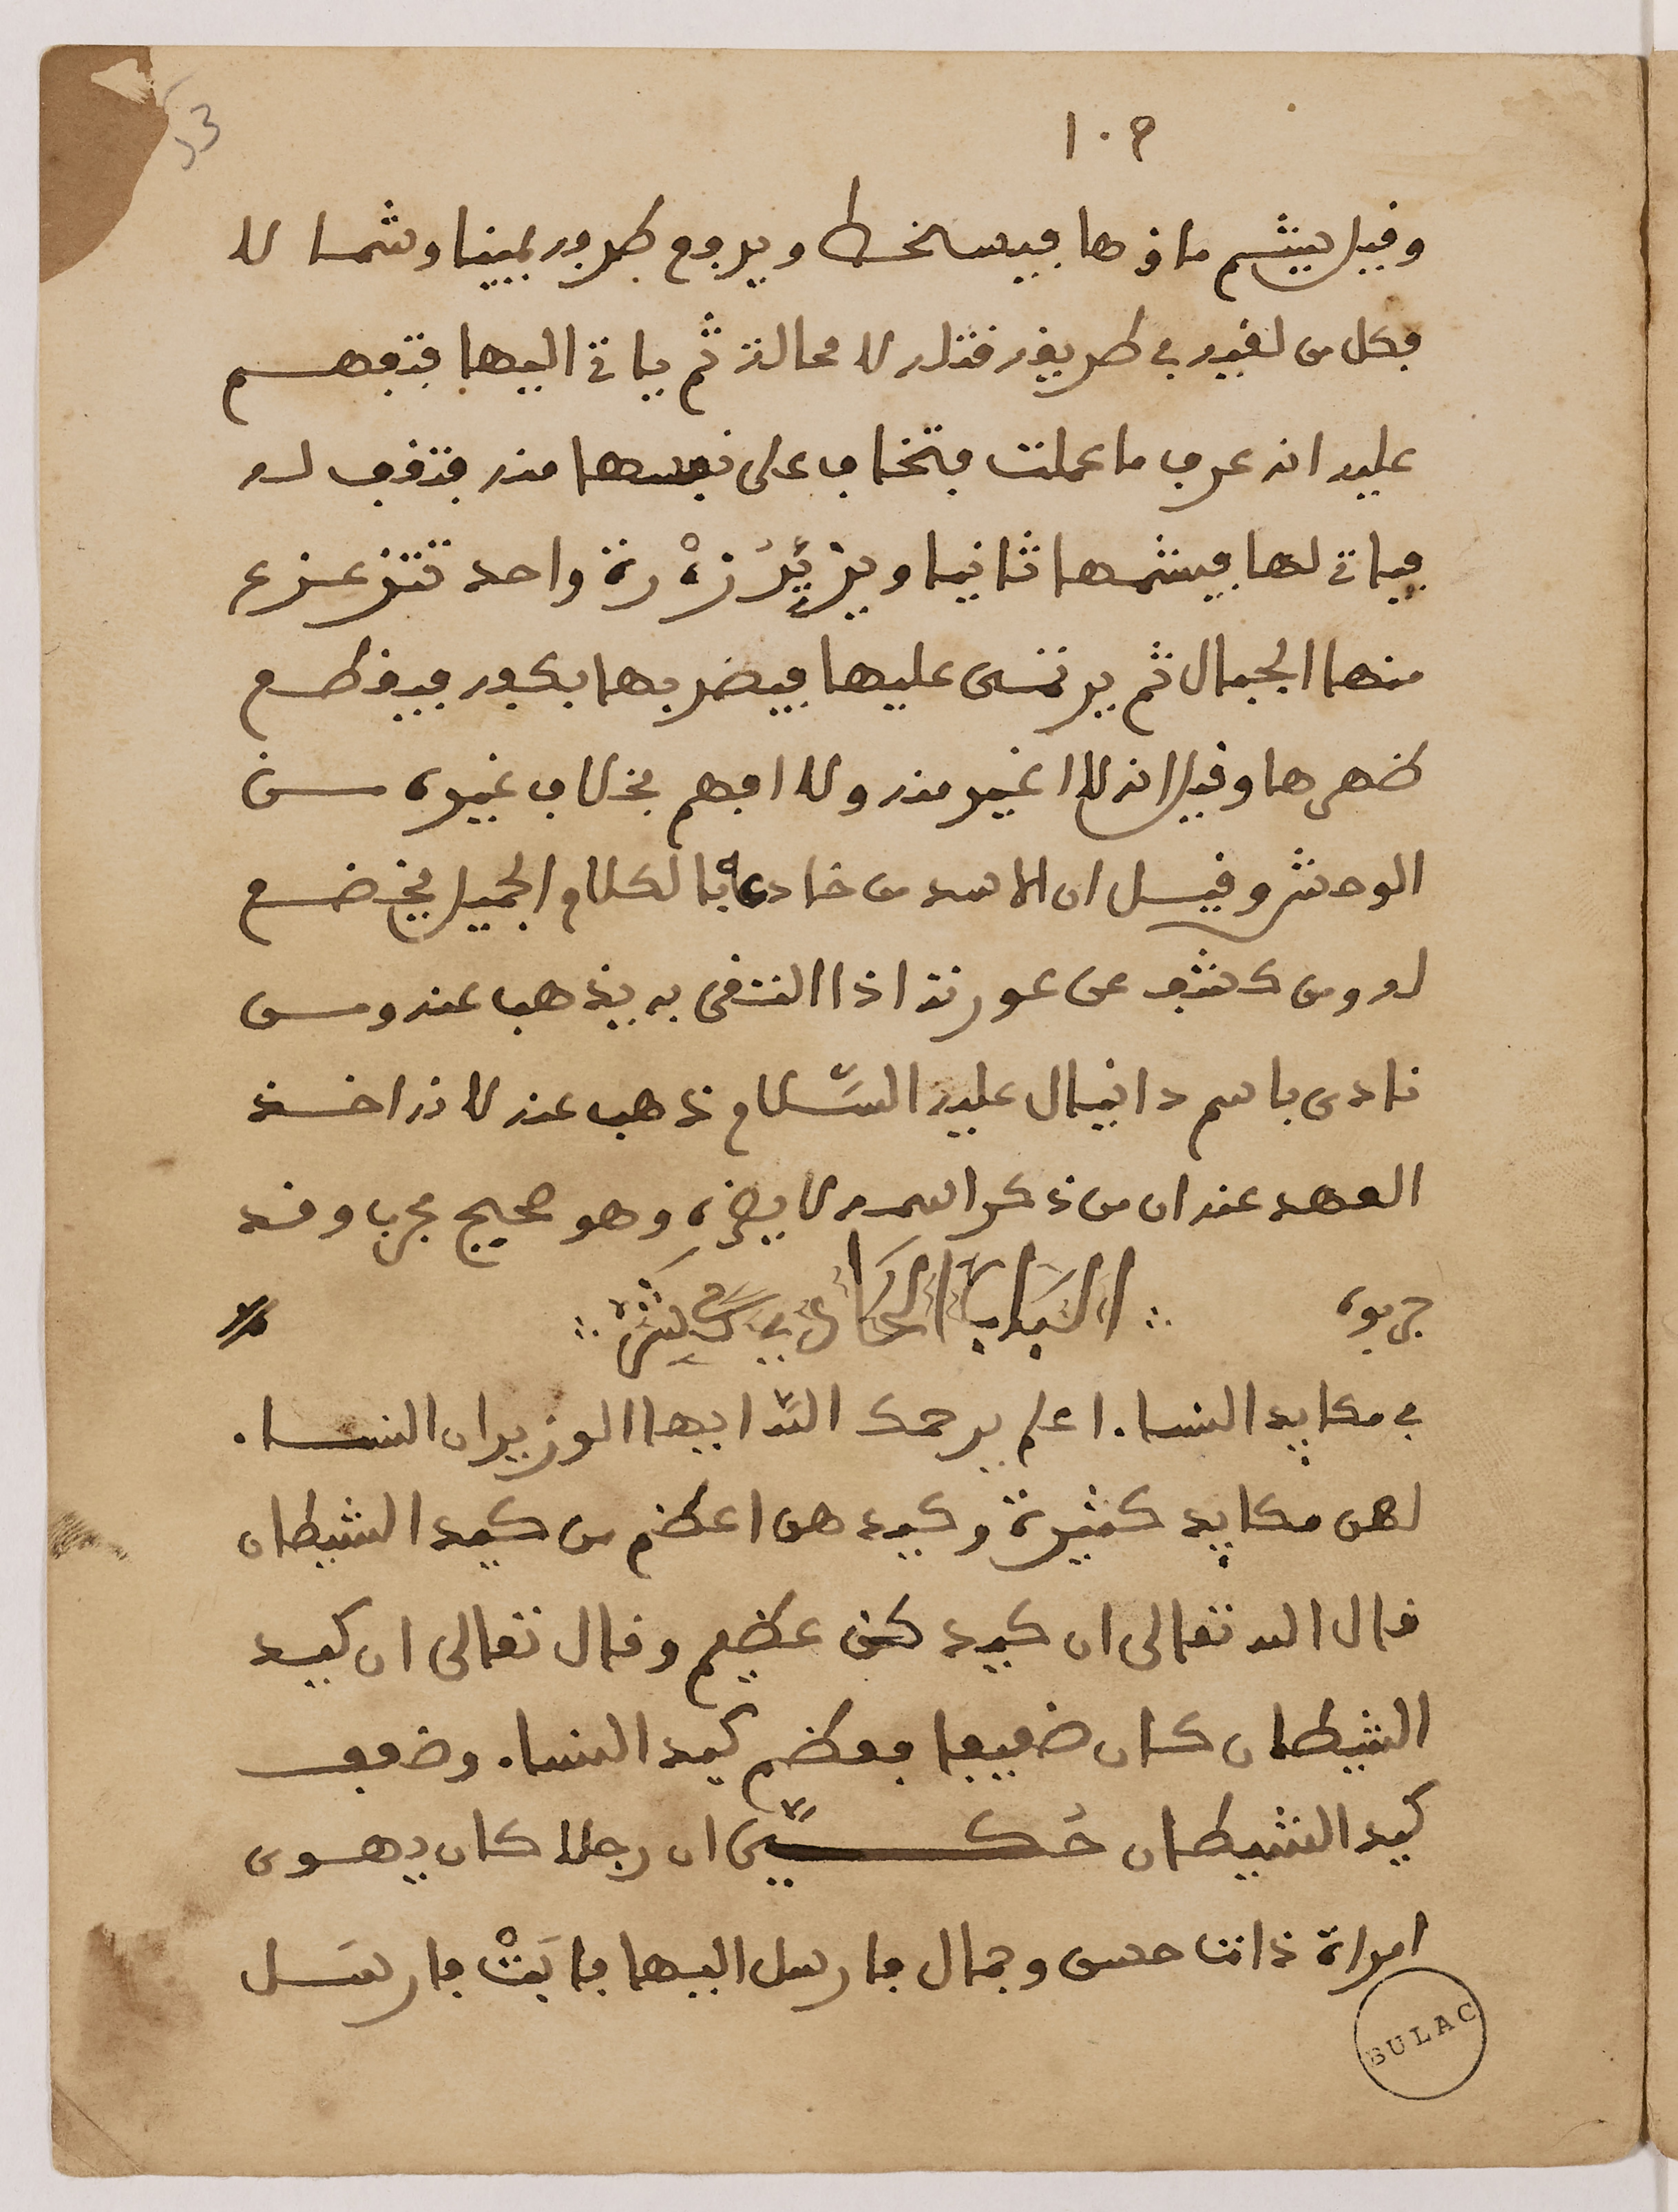 53
١٠٢
وقيل يشم ماؤها فيسخط ويرفع طرفه يمينا وشمالا
فكل من لقيه في طريقه قتله لا محالة ثم ياتي اليها فتفهم
عليه انه عرف ما عملت فتخاف على نفسها منه فتقف له
فياتي لها فيشمها ثانيا ويزئر زءرة واحدة تتزعزع
منها الجبال ثم يرتمى عليها فيضربها بكفه فيقطع
ظهرها وقيل انه لا اغير منه ولا افهم بخلاف غيره من
الوحش وقيل ان الاسد من خادعه بالكلام الجميل يخضع
له ومن كشف عن عورته اذا التقى به يذهب عنه ومن
نادى باسم دانيال عليه السّلام ذهب عنه لانه اخذ
العهد عنه ان من ذكر اسمه لا يضره وهو صحيح مجرب وقد
جربوه ∴ الباب الحادي عشر ∴
في مكايد النساء اعلم يرحمك الله ايها الوزير ان النساء
لهن مكايد كثيرة وكيدهن اعظم من كيد الشيطان
قال الله تعالى ان كيدكن عظيم وقال تعالى ان كيد
الشيطان كان ضعيفا فعظم كيد النساء وضعف
كيد الشيطان حُكيّ ان رجلا كان يهوى
امراة ذات حسن وجمال فارسل اليها فابَتْ فارسَل
BULAC